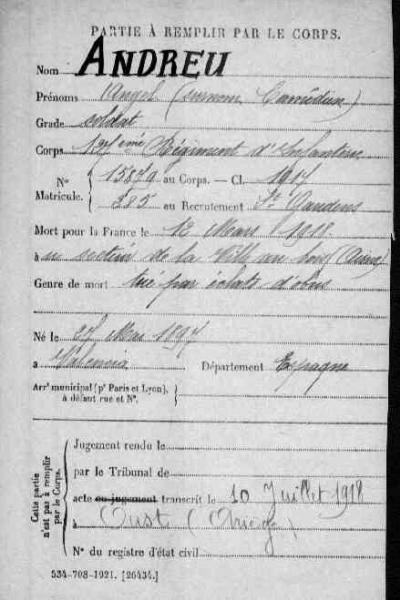 PARTIE À REMPLIR PAR LE CORPS.
Nom ANDREU
Prénoms Angel (surnom
Grade soldat
Corps Régiment d'Infanterie
N° Matricule. { 15879 au Corps. — Cl. 1917
885 au Recrutement St Gaudens
Mort pour la France le 12 Mars 1918
à au secteur de la Ville au bois (Aisne)
Genre de mort tué par éclats d'obus
Né le 27 Mai 1897
à Valencia Département Espagne
Arrt municipal (pr Paris et Lyon), à défaut rue et N°. {
Cette partie n'est pas à remplir par le Corps.
Jugement rendu le
par le Tribunal de
acte ou jugement transcrit le 10 Juillet 1918
à Oust (Ariège)
N° du registre d'état civil
534-708-1921. [26434.]